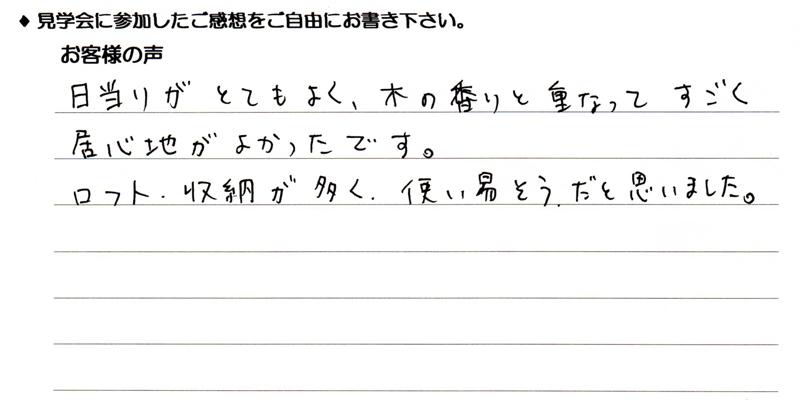 ◆ 見学会に参加したご感想をご自由にお書き下さい。
お客様の声
日当りがとてもよく、木の香りと重なってすごく
居心地がよかったです。
ロフト・収納が多く、使い易そうだと思いました。